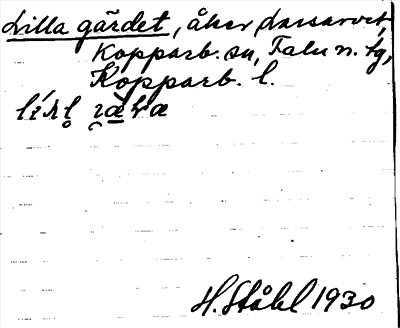 Lilla gärdet, åker Lassarvet,
Kopparb. sn, Falu n. tg,
Kopparb. l.
H. Ståhl 1930